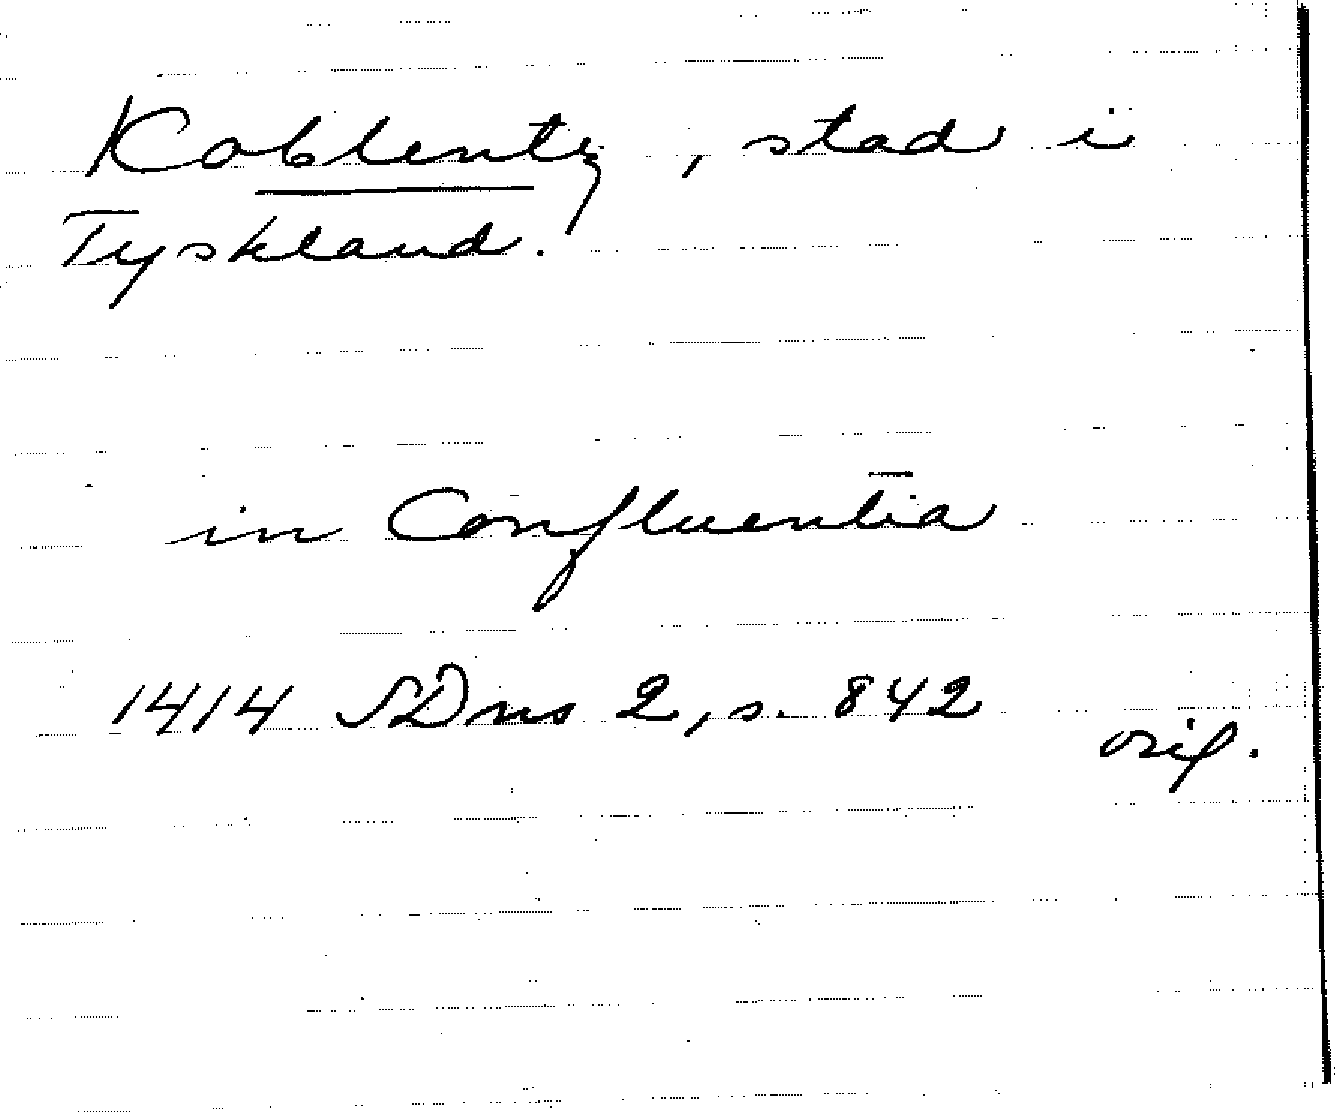 Koblentz, stad i
Tyskland.
in Confluentia
1414 SDns 2, s. 842
orig.